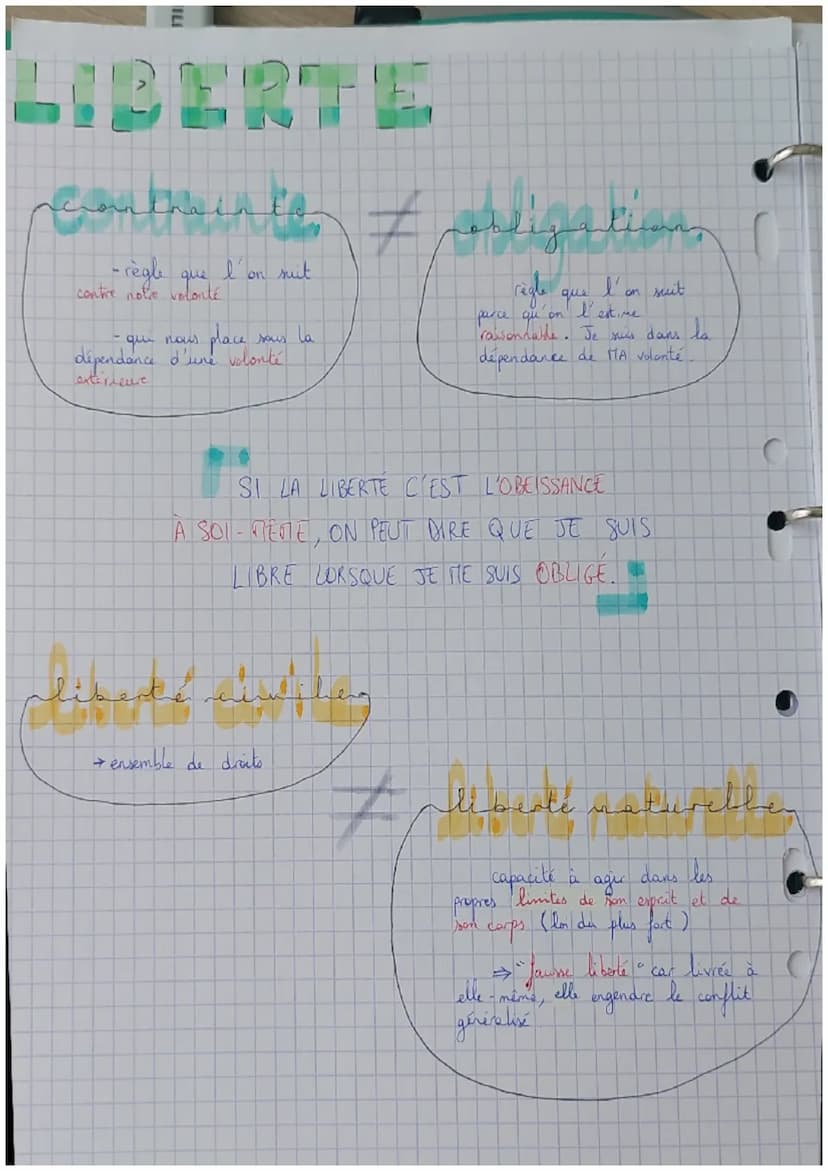 LIBERTE
contrainte
- règle que l'on suit
contre notre volonté
- qui nous place sous la
dépendance d'une volonté
extérieure
≠
obligation
règle que l'on suit
parce qu'on l'estime
raisonnable. Je suis dans la
dépendance de MA volonté.
SI LA LIBERTÉ C'EST L'OBEISSANCE
À SOI-MEME, ON PEUT DIRE QUE JE SUIS
LIBRE LORSQUE JE ME SUIS OBLIGÉ.
liberté civile
→ ensemble de droits
≠
liberté naturelle
capacité à agir dans les
propres limites de son esprit et de
son corps (loi du plus fort)
⇒ "fausse liberté" car livrée à
elle-même, elle engendre le conflit
généralisé